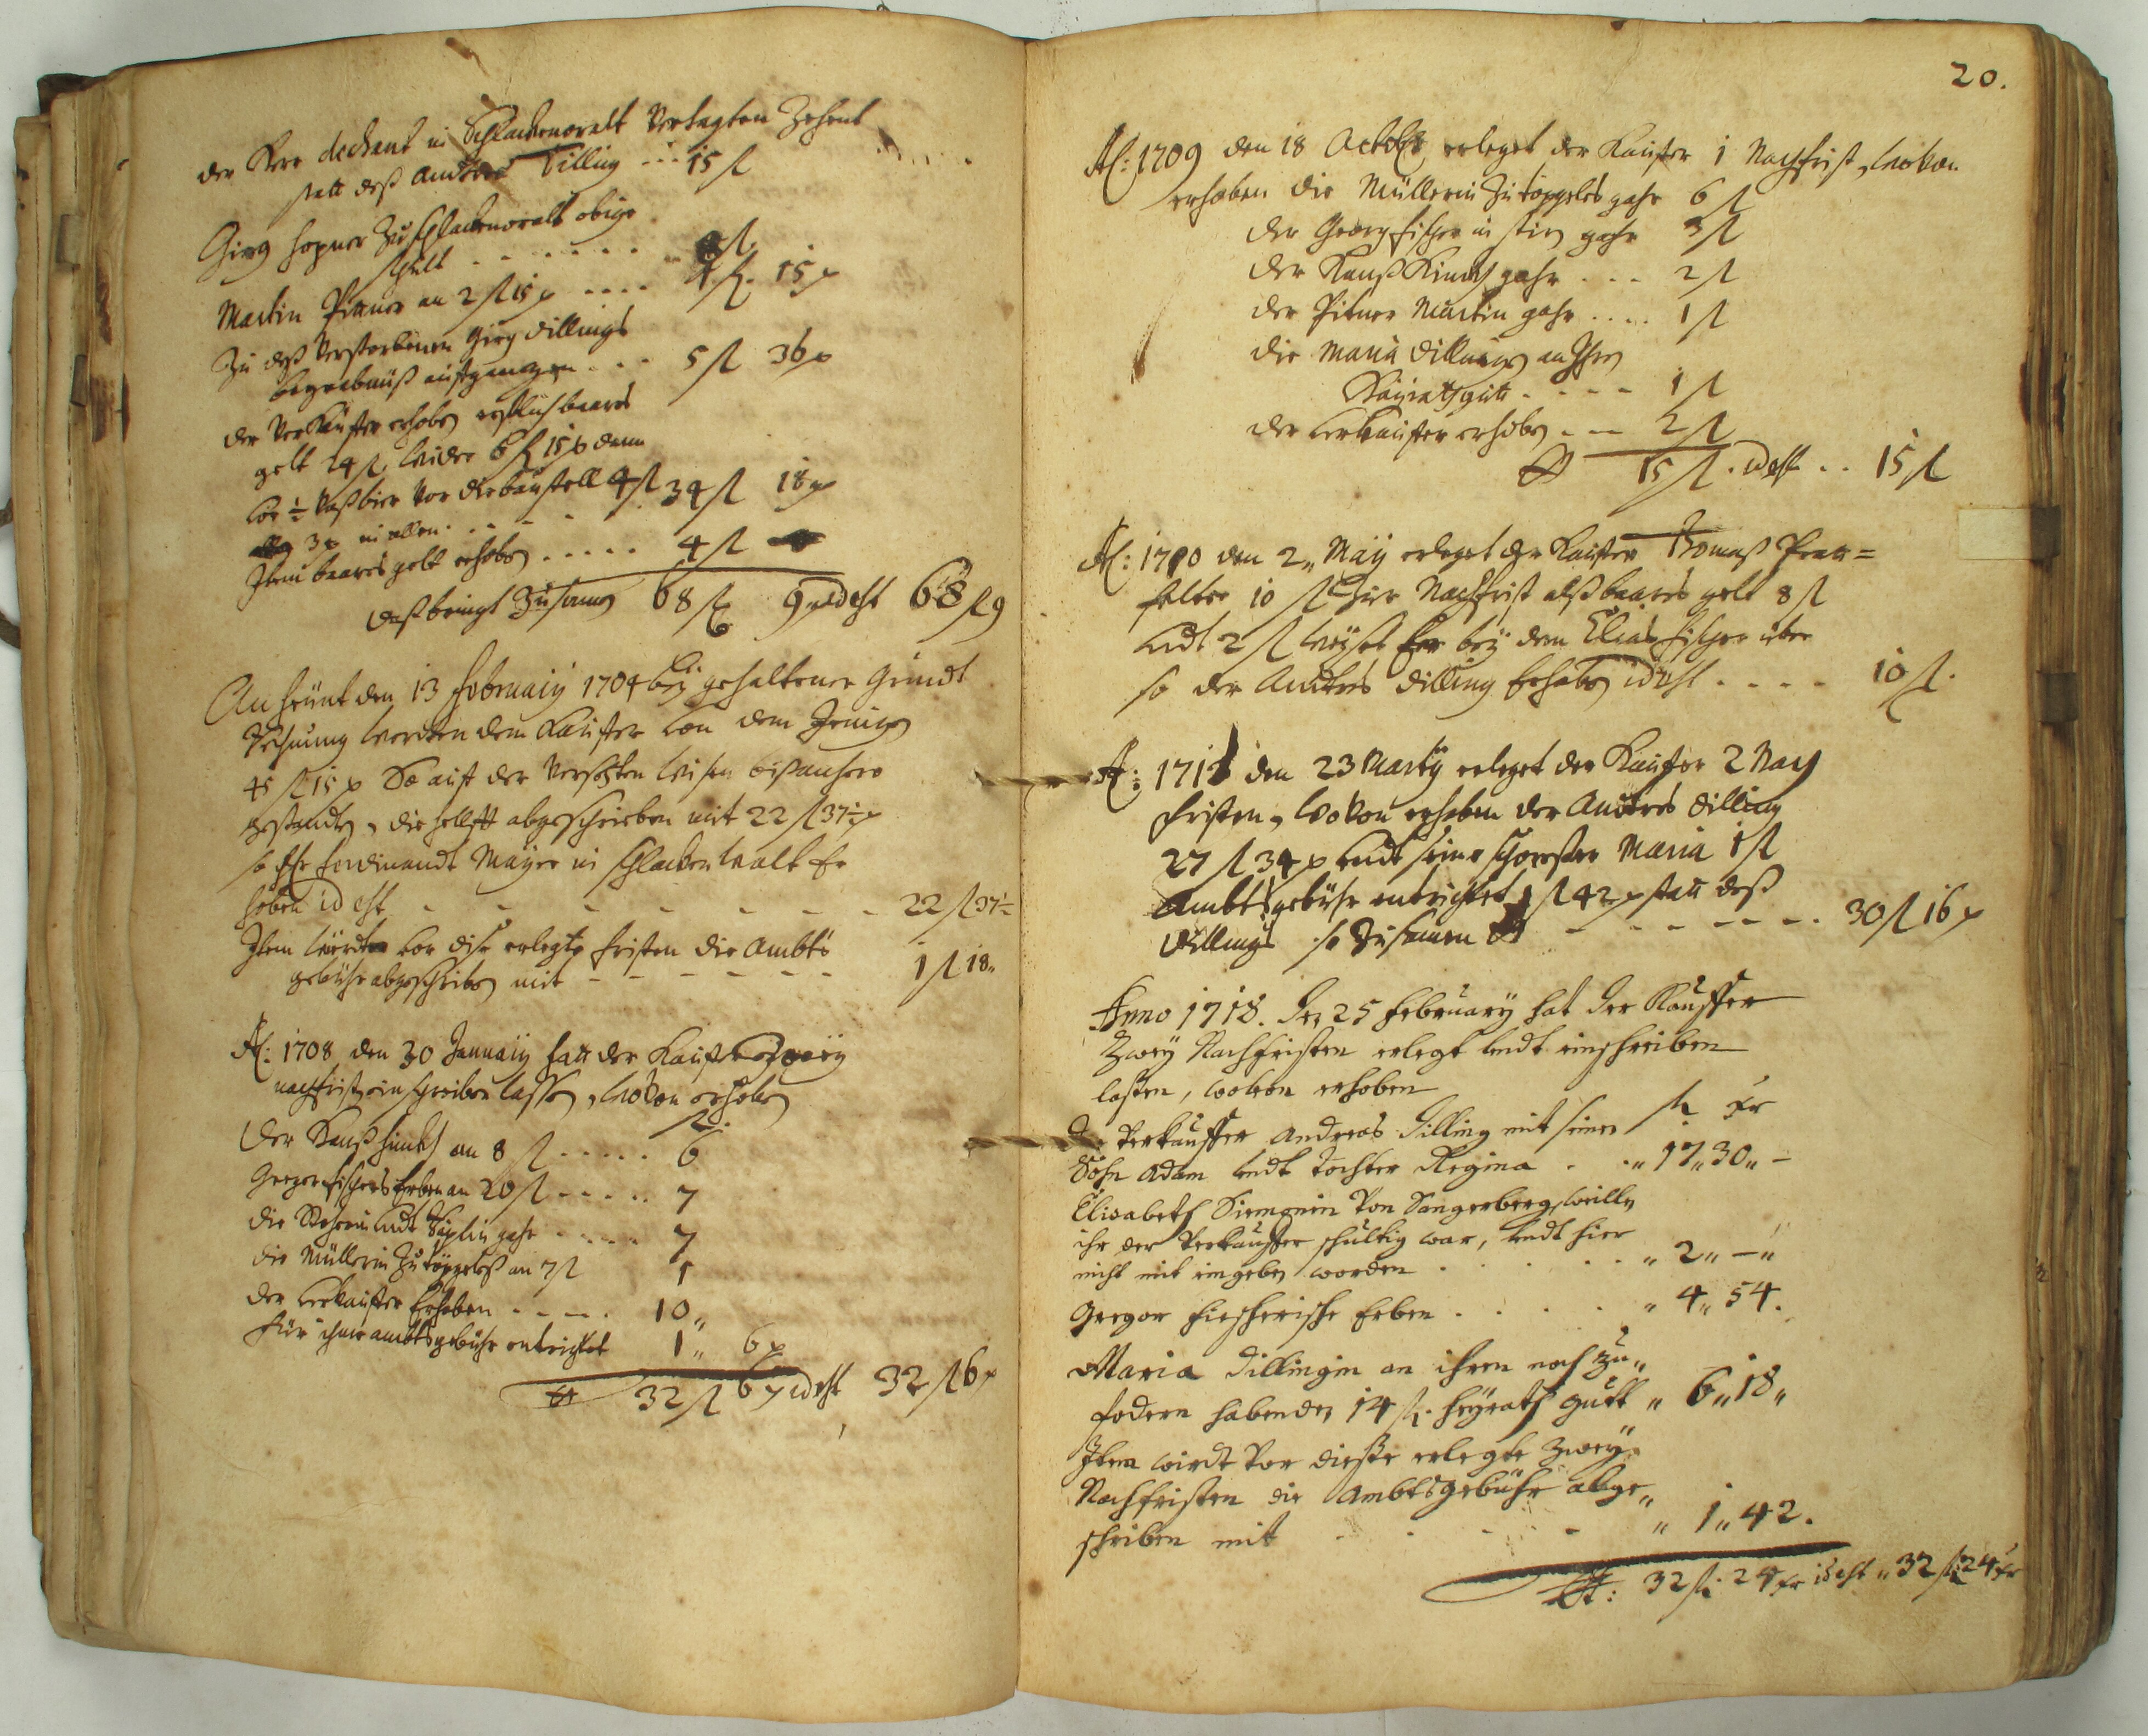 der Herr dechant in Schlackenwalt Vertagten Zehent
statt deß Andreß Tilling ... 15 fl
Girg Hopner Zu Schlackenwalt obige
schult . . . . . . fl.
Martin Pittner an 2 fl 15 x . . . . 4 fl. 15 x
Zu deß Verstorbenen Girg Dillings
begrabnuß aufgangen . . . 5 fl 36 x
der Verkäuffer erhoben erstlich baares
gelt 24 fl. wider 6 fl 15 x dann
vor ½ Vaß bier Vor die baustell 4 fl 34 fl 18 x
3 x in allen . . . .
Item baares gelt erhoben . . . . . 4 fl
Daß bringt Zusamen 68 fl 9 x id est 68 fl 9
An heünt den 13 February 1704 bey gehaltener Grundt
Rechnung werden dem Kauffer von dem Jenigen
45 fl 15 x So auff der Versezten wisen bißanhero
gestanden, die helfft abgeschrieben mit 22 fl 37½ x
so Hr Ferdinandt Mayer in Schlackenwalt Er
hoben id est - - - - - - - 22 fl 37½
Item werden vor dise erlegte fristen die Ambts
gebühr abgeschriben mit - - - - - - 1 fl 18„
A: 1708 den 30 January hatt der Kauffer zweÿ
nachfrist ein schreiben lassen, wovon erhoben
fl.
Der Hanß Heinl an 8 fl . . . . . 6
Gregor fischers Erben an 20 fl . . . . . 7
die undt gahr . . . . . 7
die Müllerin Zu töppeleß an 7 fl 1
der Verkauffer Erhoben - - - - . 10„
für ihme ambtsgebühr entrichtet 1„ 6 x
32 fl 6 x id est 32 fl 6 x
20.
A: 1709 den 18 Octobr erleget der Kauffer 1 Nachfrist, wovon
erhoben die Müllerin Zu töppeles gahr 6 fl
der Georg fischer in gahr 3 fl
der Hanß Heinl gahr . . . 2 fl
der Pitner Martin gahr . . . . 1 fl
die Maria Dillings an Ihr
Heüratsgutt . - - - 1 fl
der Verkauffer erhoben . - - 2 fl
15 fl. id est . . 15 fl
A: 1710 den 2„ May erleget der Kauffer Thomaß =
felter 10 fl Zur Nachfrist alß baares gelt 8 fl
undt 2 fl weyset Er bey dem Elias fischer über
so der Andres Dilling Erhoben id est . - - - 10 fl.
A: 1711 den 23 Marty erleget der Kauffer 2 Nach
fristen, wovon erhoben der Andres Dilling
27 fl 34 x undt seine schwester Maria 1 fl
Ambtsgebühr entrichtet 1 fl 42 x statt deß
Dillings so Zusamen - - - - - - . 30 fl 16 x
Anno 1718. den 25 February hat der Kauffer
Zweÿ Nachfristen erlegt undt einschreiben
lassen, wovon erhoben
fl xr
Der Verkauffer Andreas Dilling mit seinen
Sohn Adam undt Tochter Regina . . „ 17„ 30„ -
Elisabeth Siemonin Von Sangerberg, weillen
ihr der Verkauffer schultig war, undt hier
nicht mit eingeben worden . . . . . . „ 2„ -„
Gregor Fischerische Erben . . . . „ 4„ 54.
Maria Dillingin an ihren noch zu„
fodern habenden 14 fl. Heyrath gutt „ 6„ 18„
Item wirdt vor dieße erlegte zweÿ
Nachfristen die Ambtsgebühr abge„
schriben mit - - - - „ 1„ 42.
32 fl. 24 xr id est „ 32 fl 24 xr